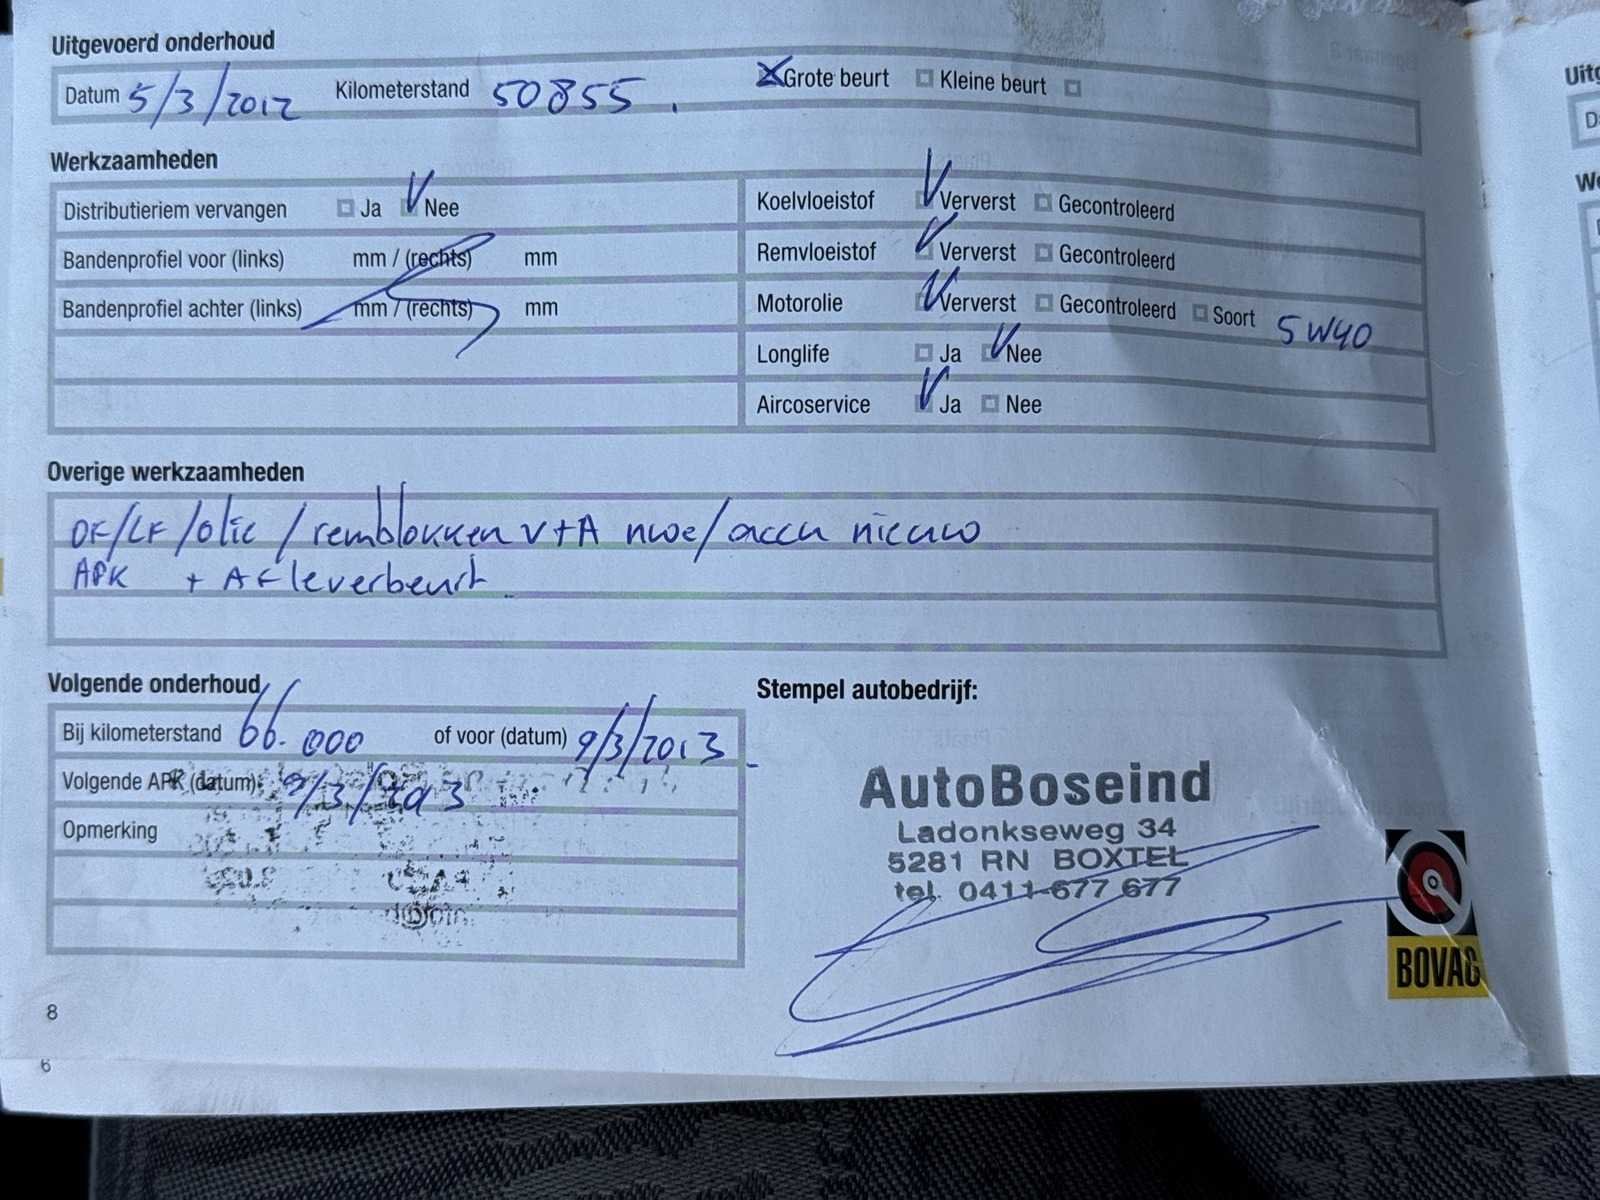 Uitgevoerd onderhoud
Datum 5/3/2012 Kilometerstand 50855. Grote beurt Kleine beurt
Werkzaamheden
Distributieriem vervangen Ja Nee
Koelvloeistof Ververst Gecontroleerd
Bandenprofiel voor (links) mm / (rechts) mm
Remvloeistof Ververst Gecontroleerd
Bandenprofiel achter (links) mm / (rechts) mm
Motorolie Ververst Gecontroleerd Soort 5W40
Longlife Ja Nee
Aircoservice Ja Nee
Overige werkzaamheden
OF/LF/olie / remblokken V+A nwe/accu nieuw
APK + Afleverbeurt
Volgende onderhoud
Bij kilometerstand 66.000 of voor (datum) 9/3/2013
Volgende APK (datum): 9/3/2013
Opmerking
Stempel autobedrijf:
AutoBoseind
Ladonkseweg 34
5281 RN BOXTEL
tel. 0411-677 677
BOVAG
8
6